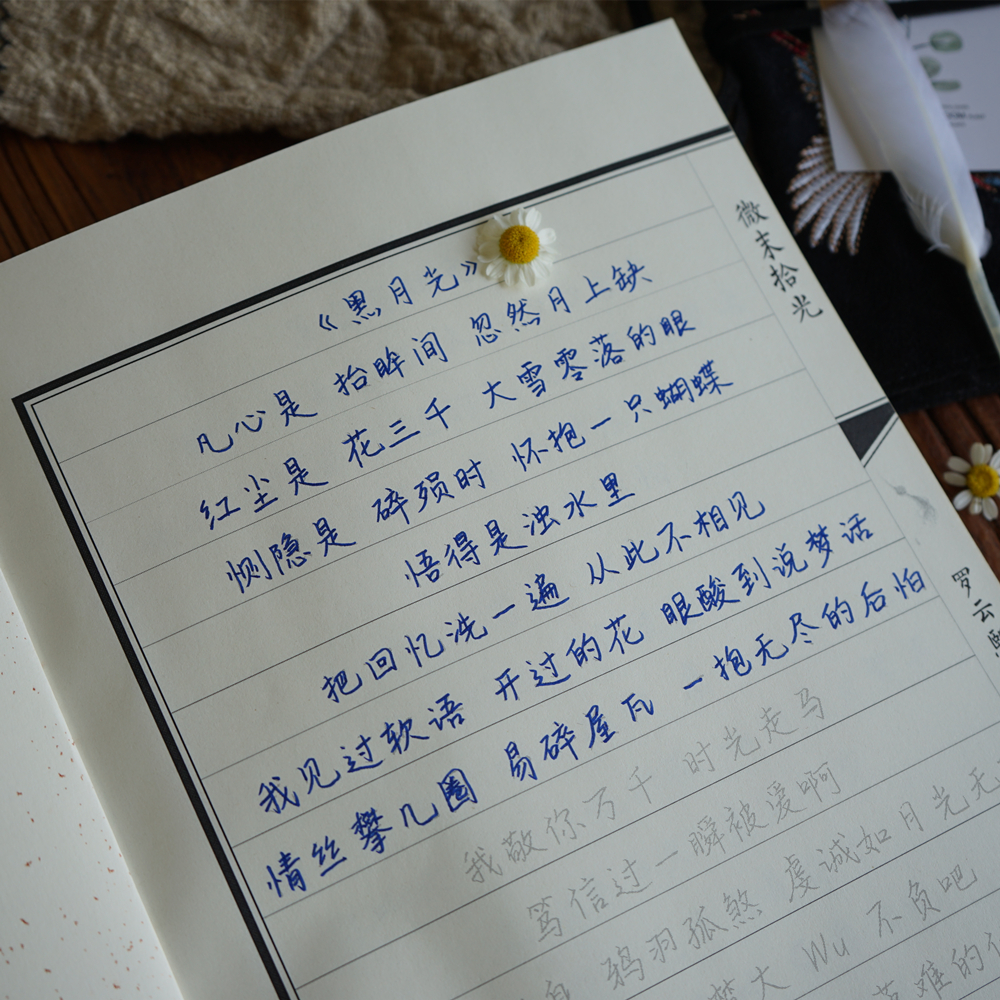 《黑月光》
凡心是 抬眸间 忽然月上缺
红尘是 花三千 大雪零落的眼
恻隐是 碎殒时 怀抱一只蝴蝶
悟得是浊水里
把回忆洗一遍 从此不相见
我见过软语 开过的花 眼酸到说梦话
情丝攀几圈 易碎屋瓦 一抱无尽的后怕
我敬你万千 时光走马
笃信过一瞬被爱啊
鸦羽孤煞 虔诚如月光无
梦大 Wu 不负吧
苦难的
微末拾光
罗云熙